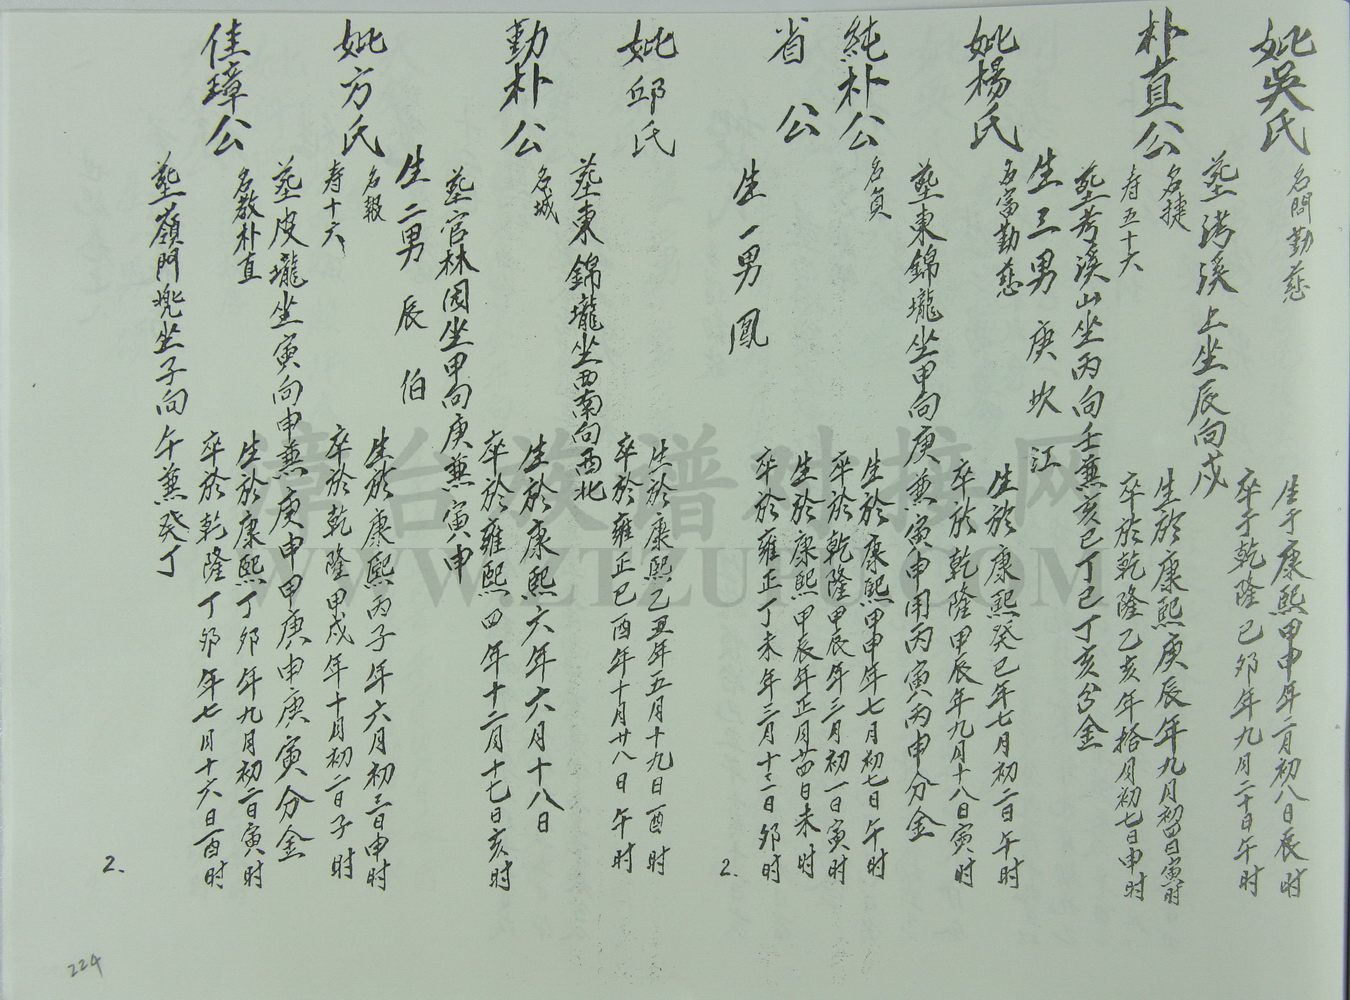 妣吳氏
名問勤慈
生于康熙甲申年二月初八日辰时
卒于乾隆己卯年九月二十日午时
墓湾溪上坐辰向戌
朴直公
名捷
寿五十六
生於康熙庚辰年九月初四日寅时
卒於乾隆乙亥年拾月初七日申时
墓考溪山坐丙向壬兼亥巳丁巳丁亥分金
生三男 庚 坎 江
妣楊氏
名富勤慈
生於康熙癸巳年七月初二日午时
卒於乾隆甲辰年九月十八日寅时
墓東錦壠坐甲向庚兼寅申用丙寅丙申分金
純朴公
名貞
生於康熙甲申年七月初七日午时
卒於乾隆甲辰年三月初一日寅时
省公
生於康熙甲辰年正月廿四日未时
卒於雍正丁未年三月十三日卯时
生一男 鳳
2.
妣邱氏
生於康熙乙丑年五月十九日酉时
卒於雍正己酉年十月廿八日午时
墓東錦壠坐西南向西北
勤朴公
名城
生於康熙六年六月十八日
卒於雍熙四年十二月十七日亥时
墓官林因坐甲向庚兼寅申
生二男 辰 伯
妣方氏
名報
寿十六
生於康熙丙子年六月初三日申时
卒於乾隆甲戌年十月初二日子时
墓皮壠坐寅向申兼庚申甲庚申庚寅分金
佳璋公
名教朴直
生於康熙丁卯年九月初二日寅时
卒於乾隆丁卯年七月十六日酉时
墓嶺門兠坐子向午兼癸丁
2.
224
漳台族谱对接网
WWW.ZTZUPU.COM